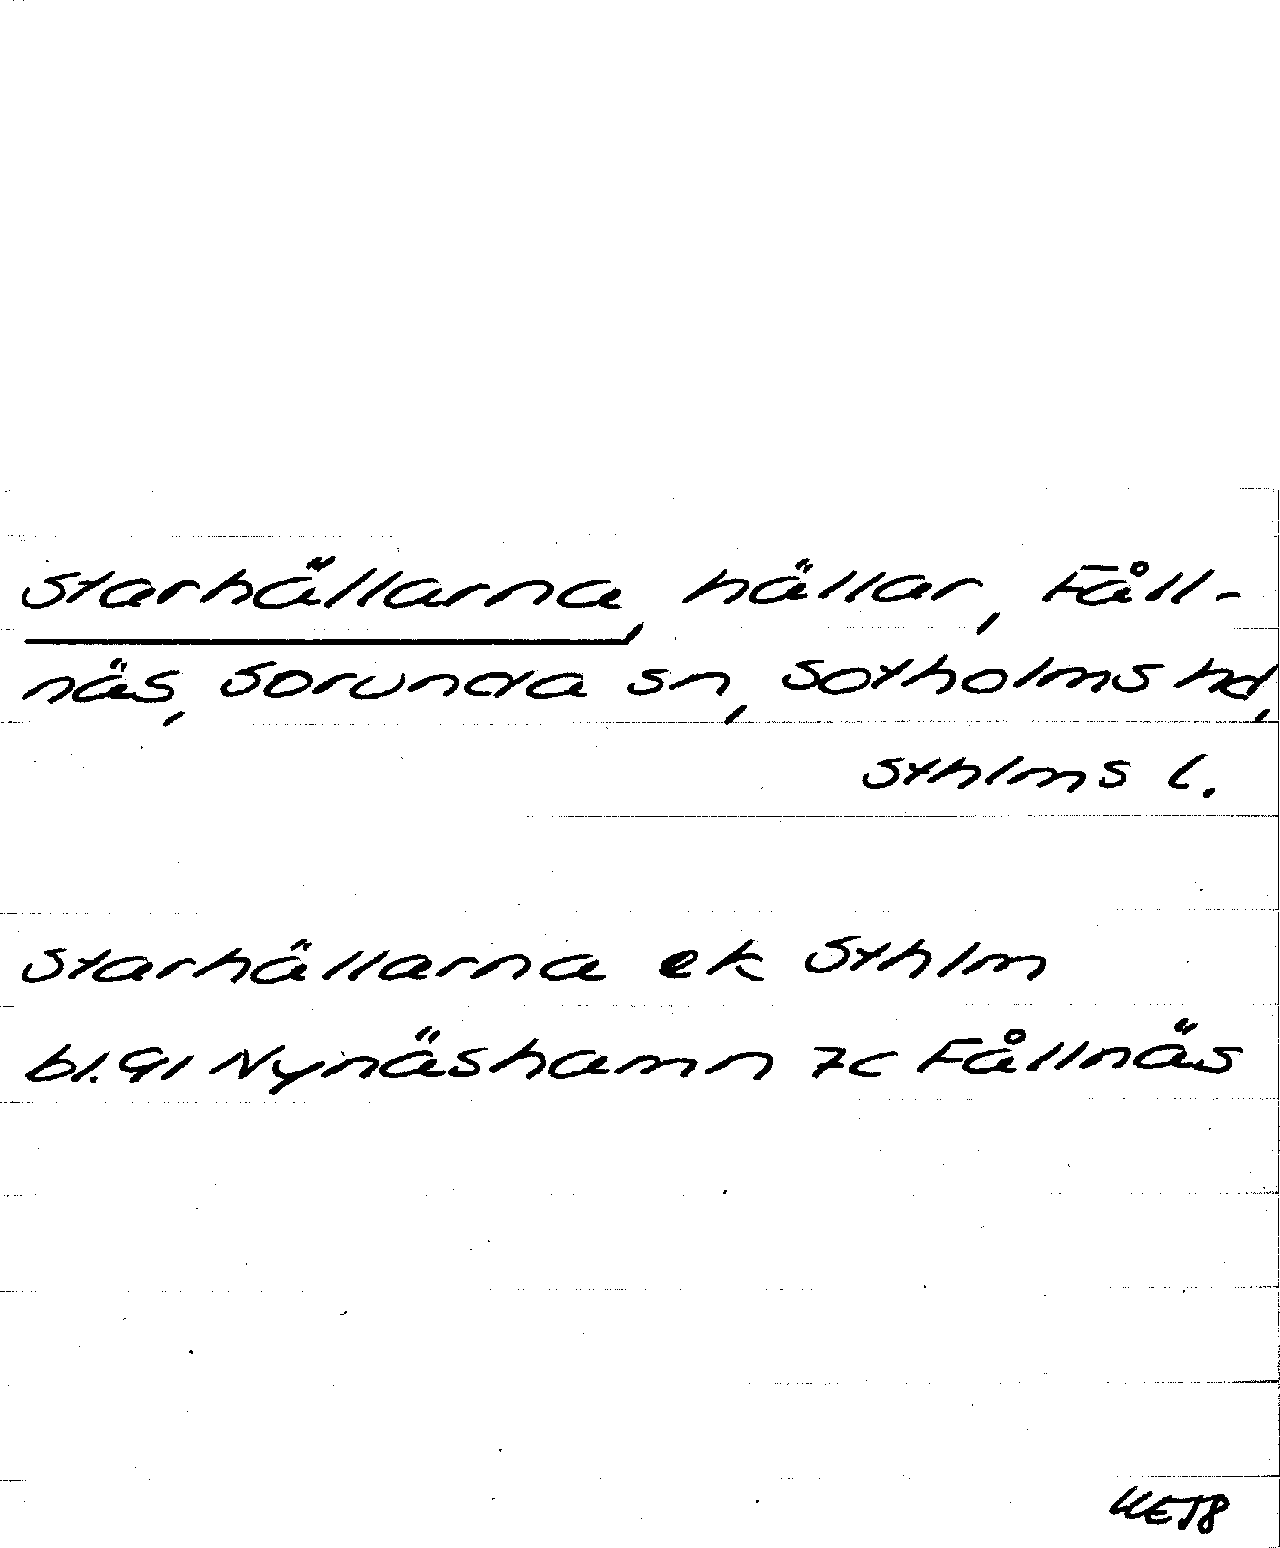 Starhällarna, hällar, Fåll-
näs, Sorunda sn, Sotholms hd,
Sthlms l.
Starhällarna ek Sthlm
bl. 91 Nynäshamn 7c Fållnäs